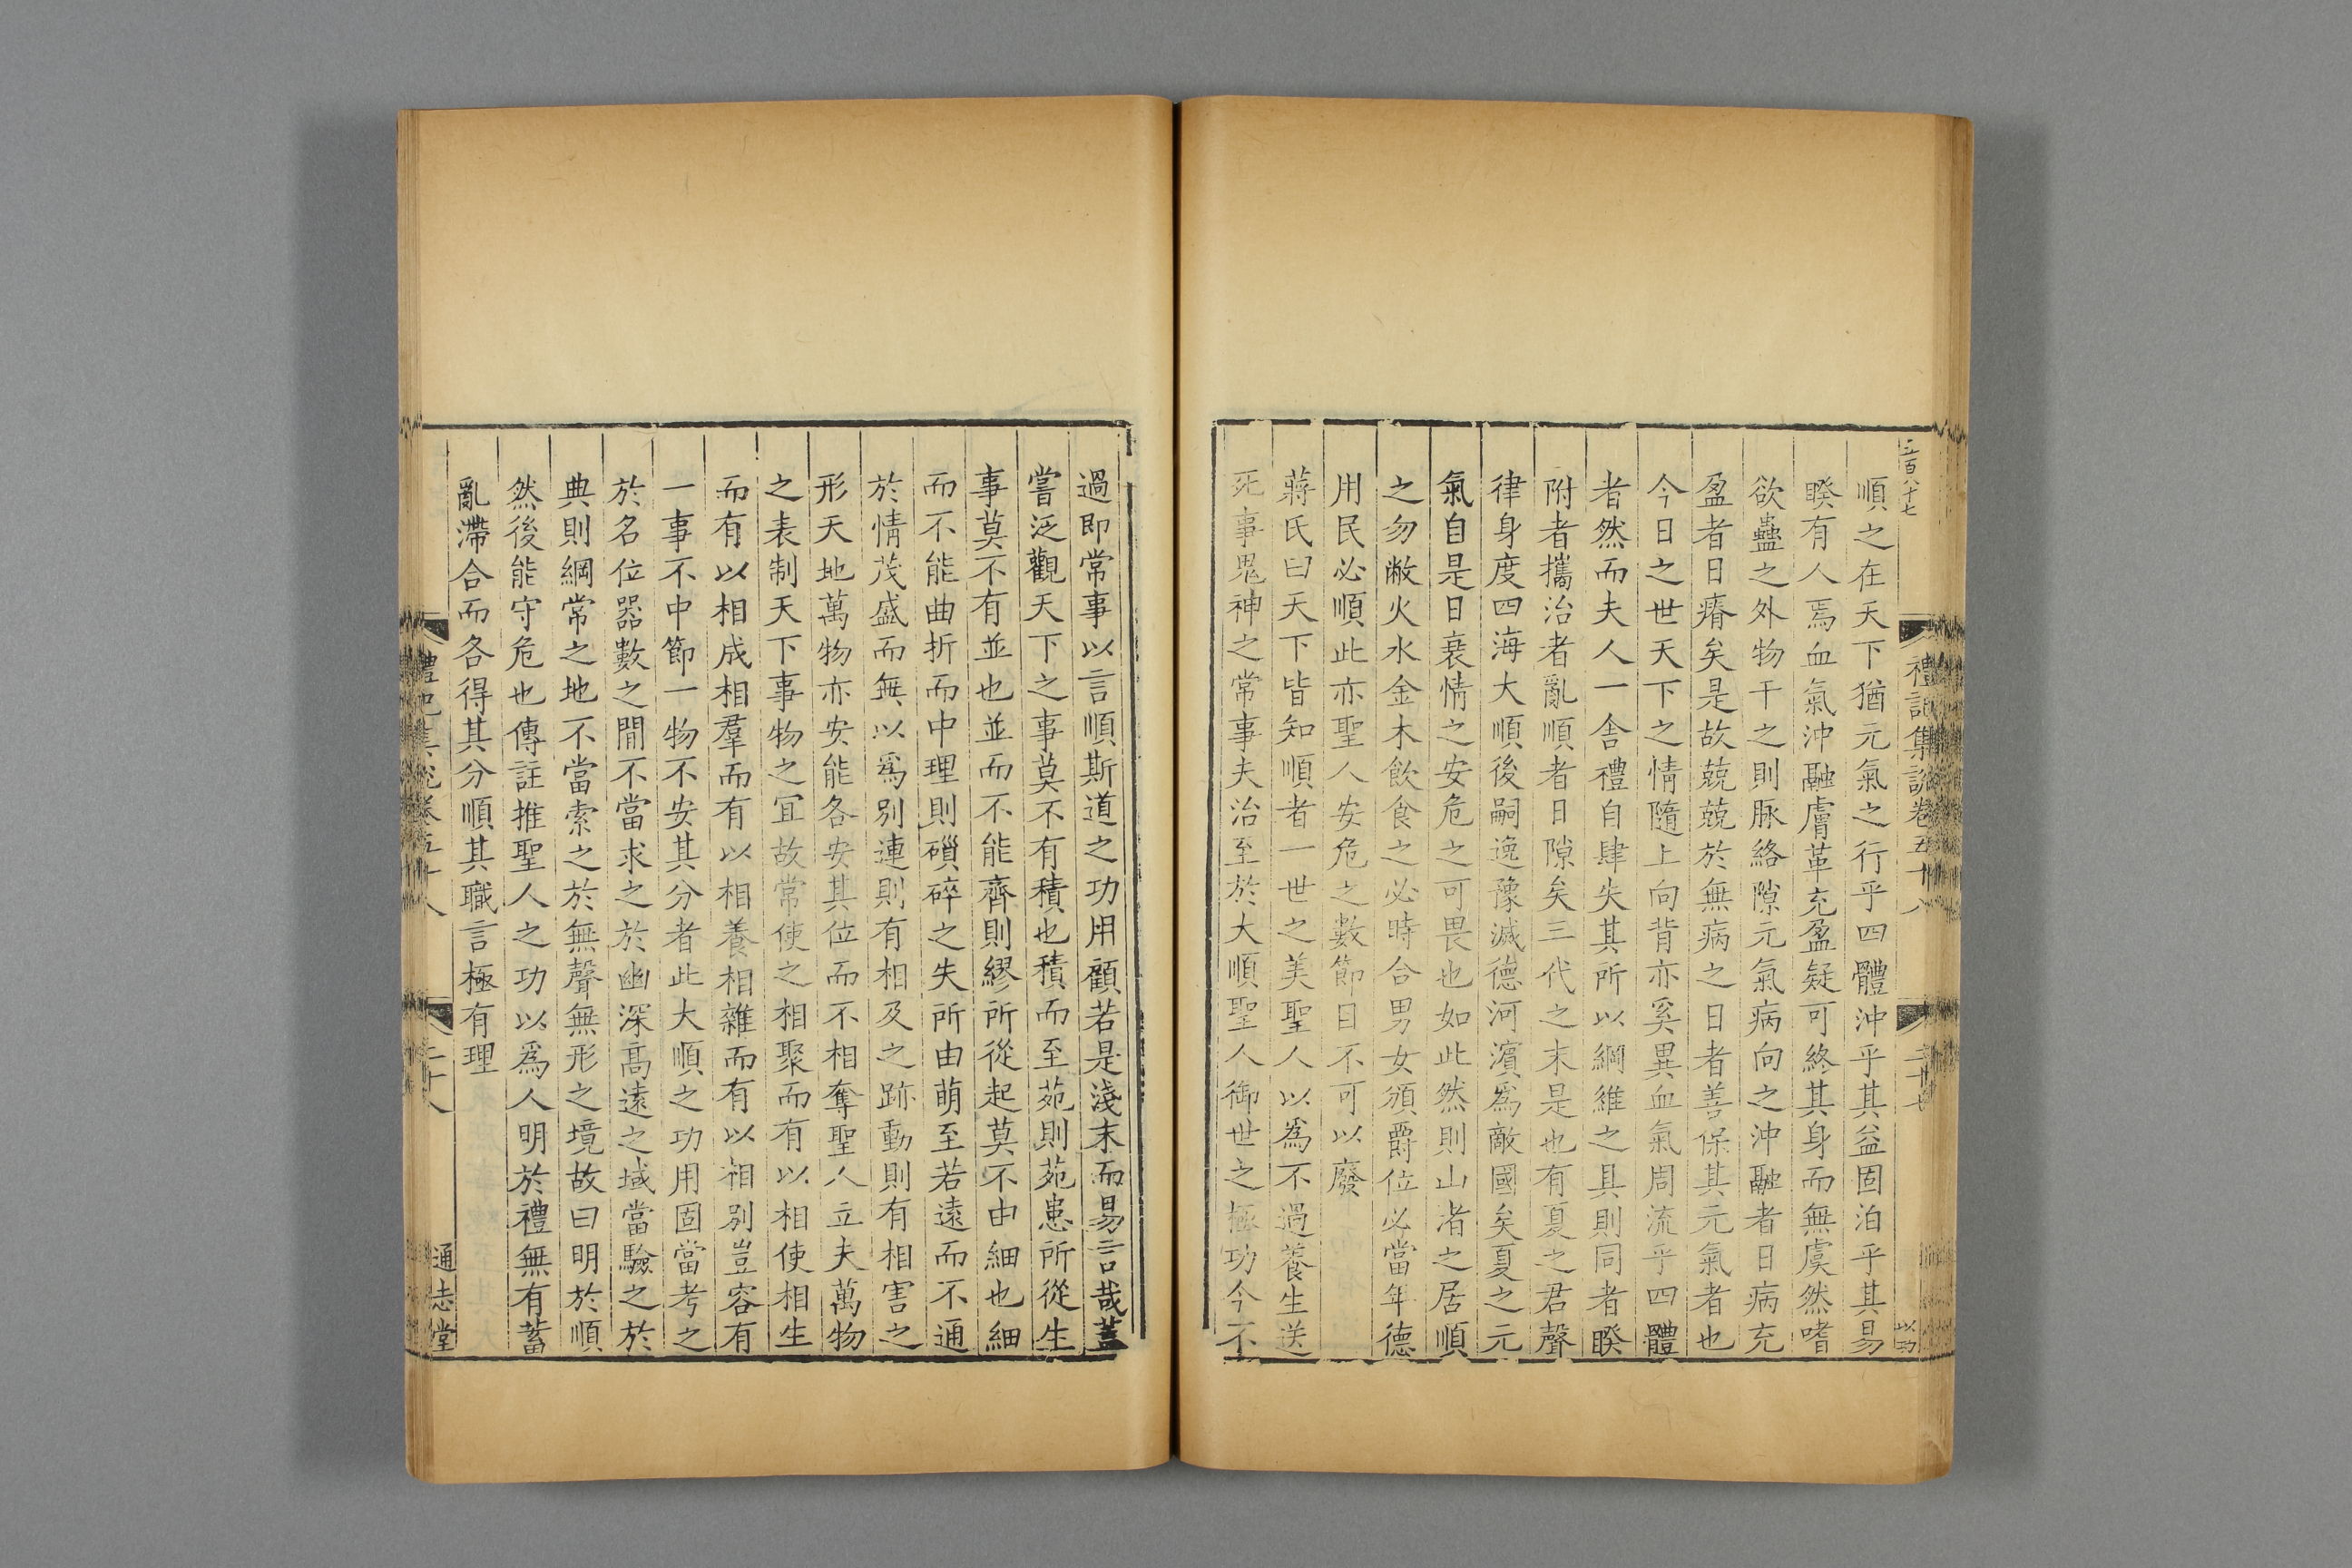 五百八十七
禮記集說卷五十八
二十七
順之在天下猶元氣之行乎四體沖乎其益固泊乎其易
睽有人焉血氣沖融膚革充盈疑可終其身而無虞然嗜
欲蠱之外物干之則脉絡隙元氣病向之沖融者日病充
盈者日瘠矣是故兢兢於無病之日者善保其元氣者也
今日之世天下之情隨上向背亦奚異血氣周流乎四體
者然而夫人一舍禮自肆失其所以綱維之具則同者睽
附者攜治者亂順者日隙矣三代之末是也有夏之君聲
律身度四海大順後嗣逸豫滅德河濱爲敵國矣夏之元
氣自是日衰情之安危之可畏也如此然則山者之居順
之勿敝火水金木飲食之必時合男女頒爵位必當年德
用民必順此亦聖人安危之數節日不可以廢
蔣氏曰天下皆知順者一世之美聖人以爲不過養生送
死事鬼神之常事夫治至於大順聖人御世之極功今不
過即常事以言順斯道之功用顧若是淺末而易言哉蓋
嘗泛觀天下之事莫不有積也積而至苑則苑患所從生
事莫不有並也並而不能齊則繆所從起莫不由細也細
而不能曲折而中理則礩碎之失所由萌至若遠而不通
於情茂盛而無以爲別連則有相及之跡動則有相害之
形天地萬物亦安能各安其位而不相奪聖人立夫萬物
之表制天下事物之冝故常使之相聚而有以相使相生
而有以相成相羣而有以相養相雜而有以相別豈容有
一事不中節一物不安其分者此大順之功用固當考之
於名位器數之閒不當求之於幽深高遠之域當驗之於
典則綱常之地不當索之於無聲無形之境故曰明於順
然後能守危也傳註推聖人之功以爲人明於禮無有蓄
亂滯合而各得其分順其職言極有理
禮記集說卷五十八
二十八
通志堂